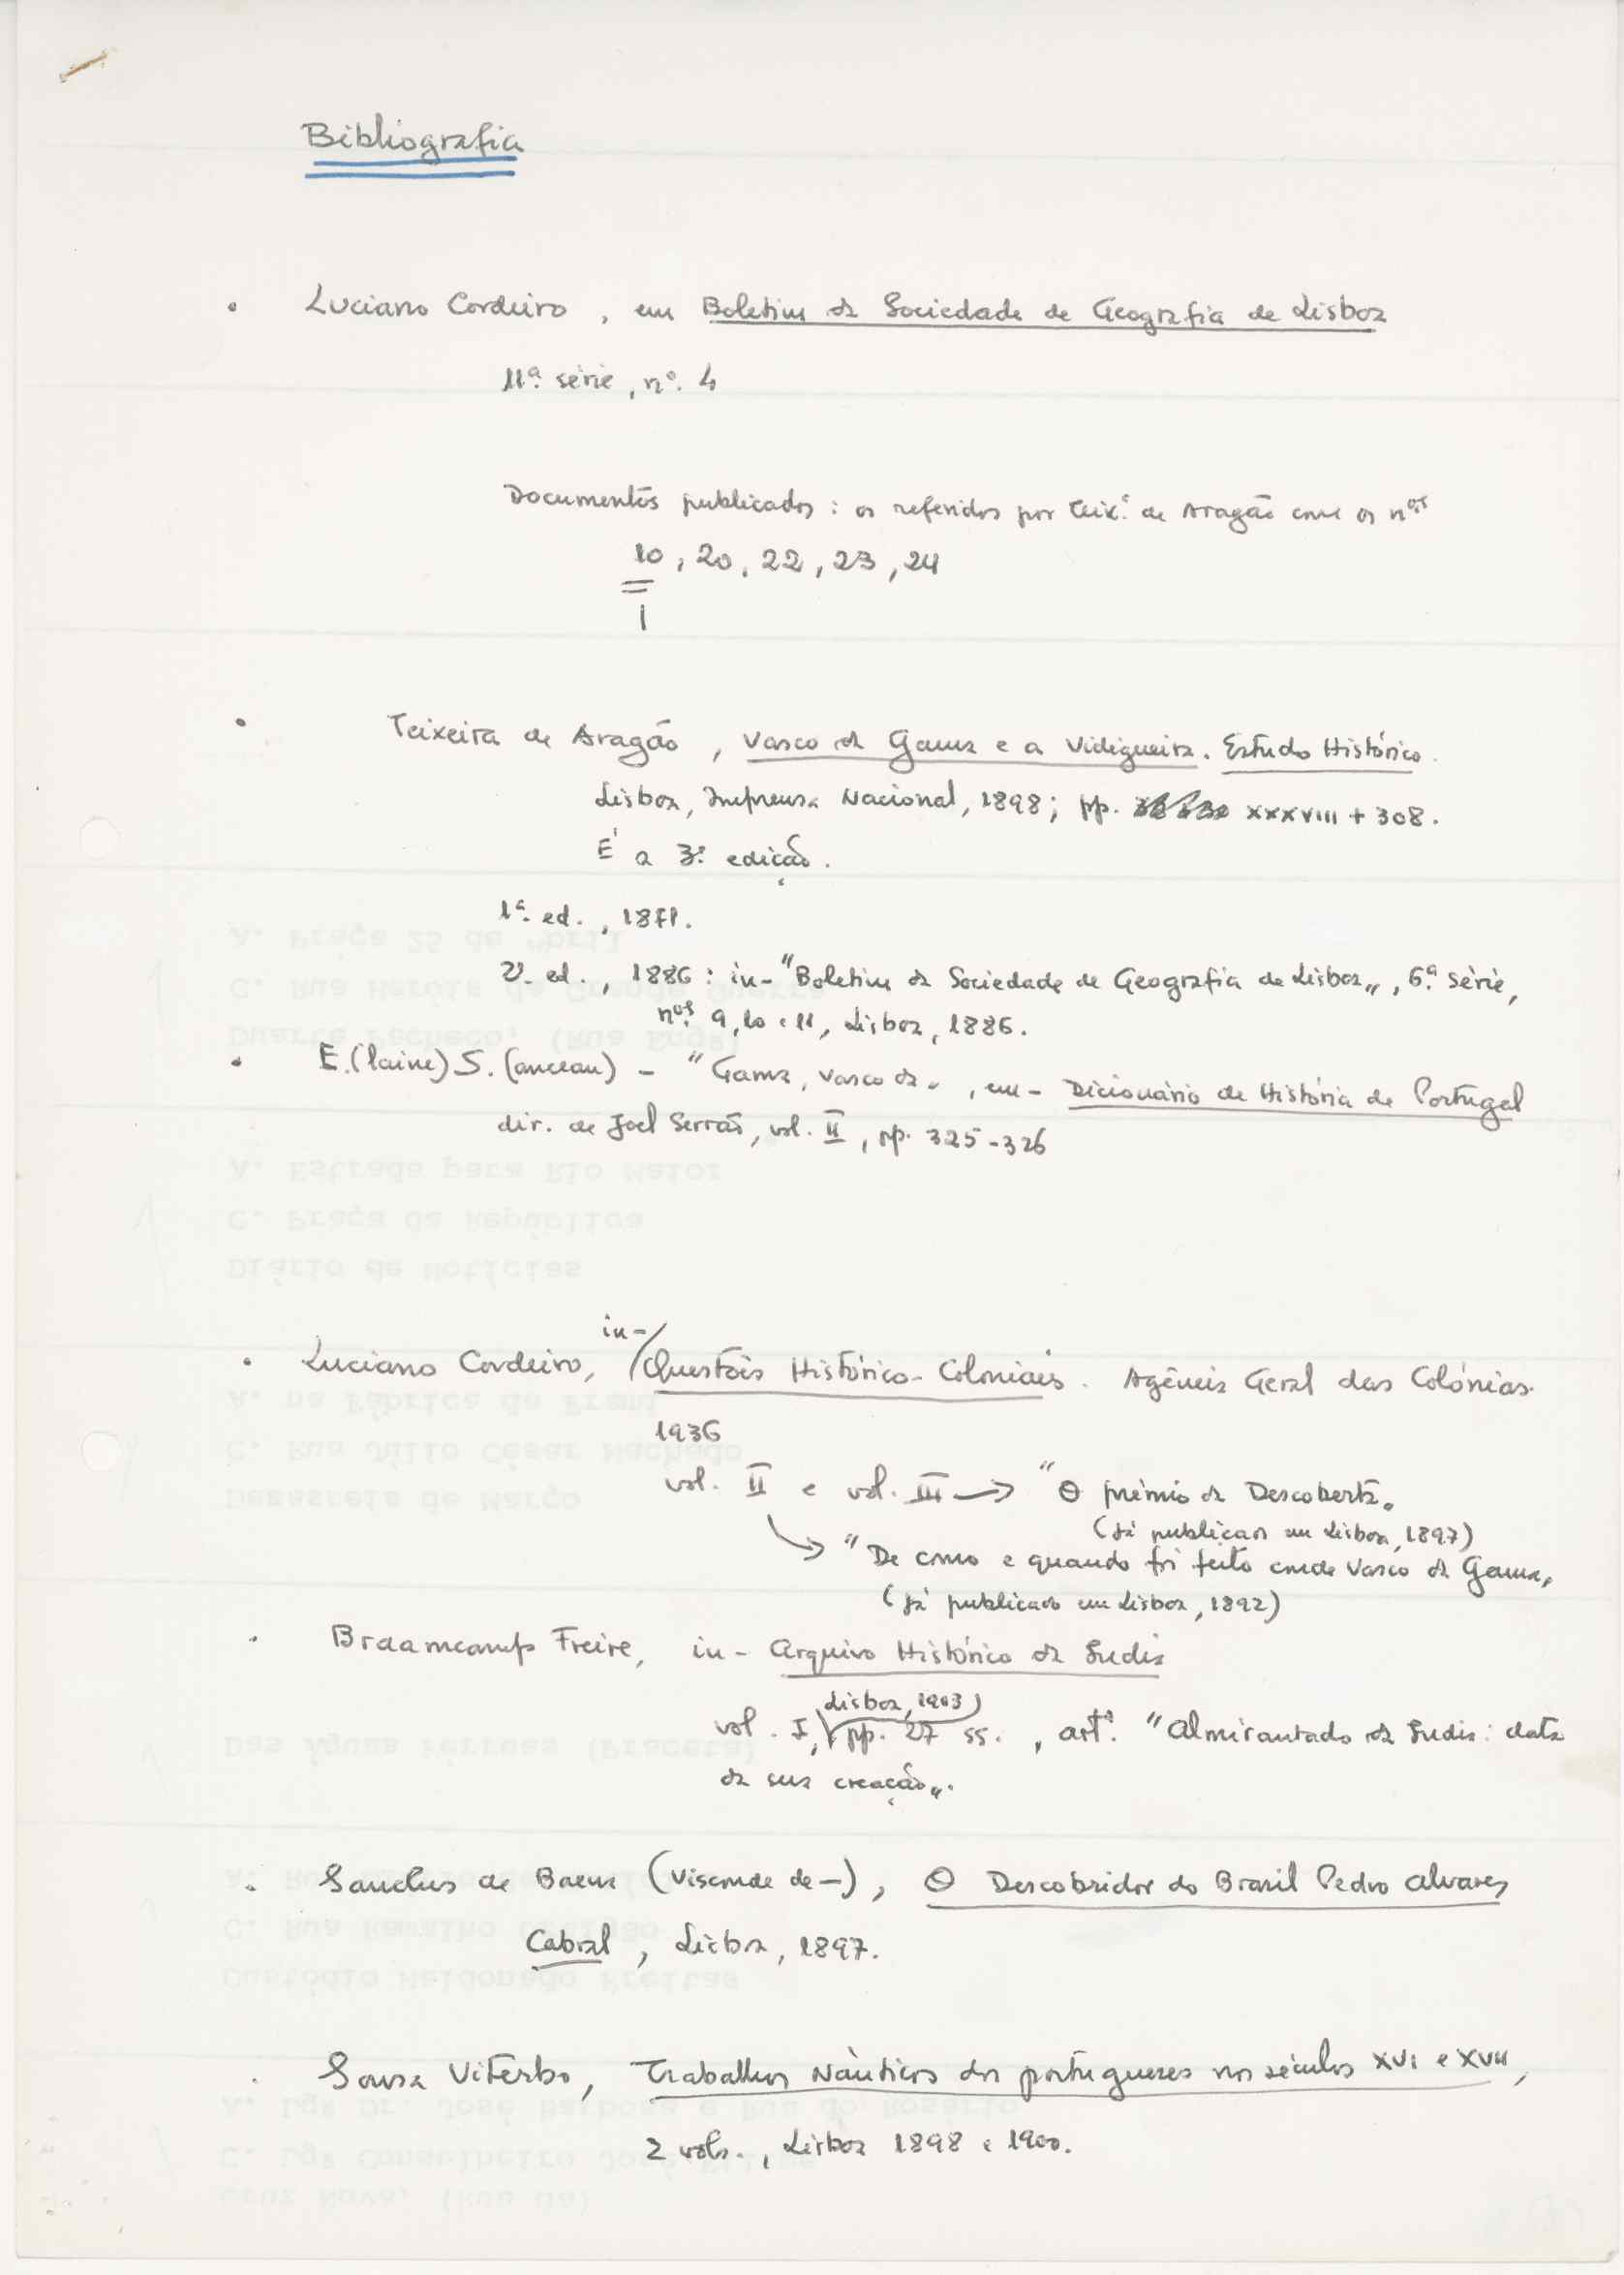 Bibliografia
• Luciano Cordeiro, em Boletim da Sociedade de Geografia de Lisboa
11ª. série, nº. 4
Documentos publicados: os referidos por Teixª. de Aragão com os nºs
10, 20, 22, 23, 24
• Teixeira de Aragão, Vasco da Gama e a Vidigueira. Estudo Histórico.
Lisboa, Imprensa Nacional, 1898; pp. XXXVIII + 308.
É a 3ª. edição.
1ª. ed., 1871.
2ª. ed., 1886: in-"Boletim da Sociedade de Geografia de Lisboa", 6ª. série,
nºs. 9, 10 e 11, Lisboa, 1886.
• E.(laine) S.(anceau) - "Gama, Vasco da", em - Dicionário de História de Portugal
dir. de Joel Serrão, vol. II, pp. 325-326
• Luciano Cordeiro, in- Questões Histórico-Coloniais. Agência Geral das Colónias.
1936
vol. II e vol. III → "O prémio da Descoberta"
(já publicado em Lisboa, 1897)
"De como e quando foi feito conde Vasco da Gama"
(já publicado em Lisboa, 1892)
• Braamcamp Freire, in- Arquivo Histórico da Índia
vol. I, Lisboa, 1903) pp. 27 ss., artº. "Almirantado da Índia: data
da sua creação".
• Sanches de Baena (Visconde de -), O Descobridor do Brasil Pedro Alvares
Cabral, Lisboa, 1897.
• Sousa Viterbo, Trabalhos Náuticos dos portugueses nos séculos XVI e XVII,
2 vols., Lisboa 1898 e 1900.